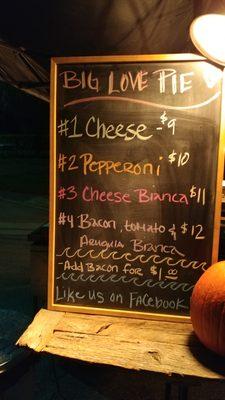 BIG LOVE PIE
#1 Cheese - $9
#2 Pepperoni $10
#3 Cheese Bianca $11
#4 Bacon, tomato & $12
Arugula Bianca
- Add Bacon for $1 00
Like us on Facebook